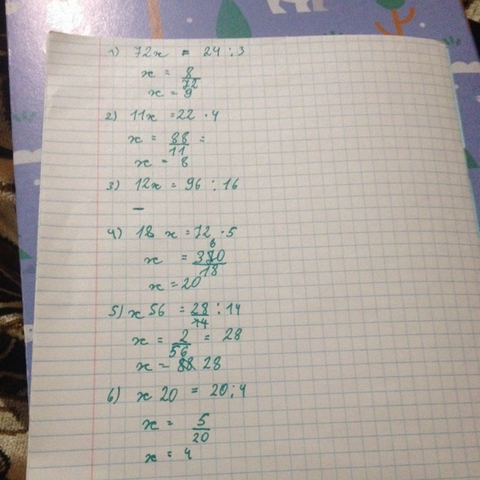 1) 72x = 24 : 3
x = 8/72
x = 9
2) 11x = 22 · 4
x = 88/11 =
x = 8
3) 12x = 96 : 16
–
4) 18 x = 72 · 5
x = 360/18
x = 20
5) x 56 = 28/14 : 14
x = 2/56 = 28
x = 28
6) x 20 = 20 : 4
x = 5/20
x = 4